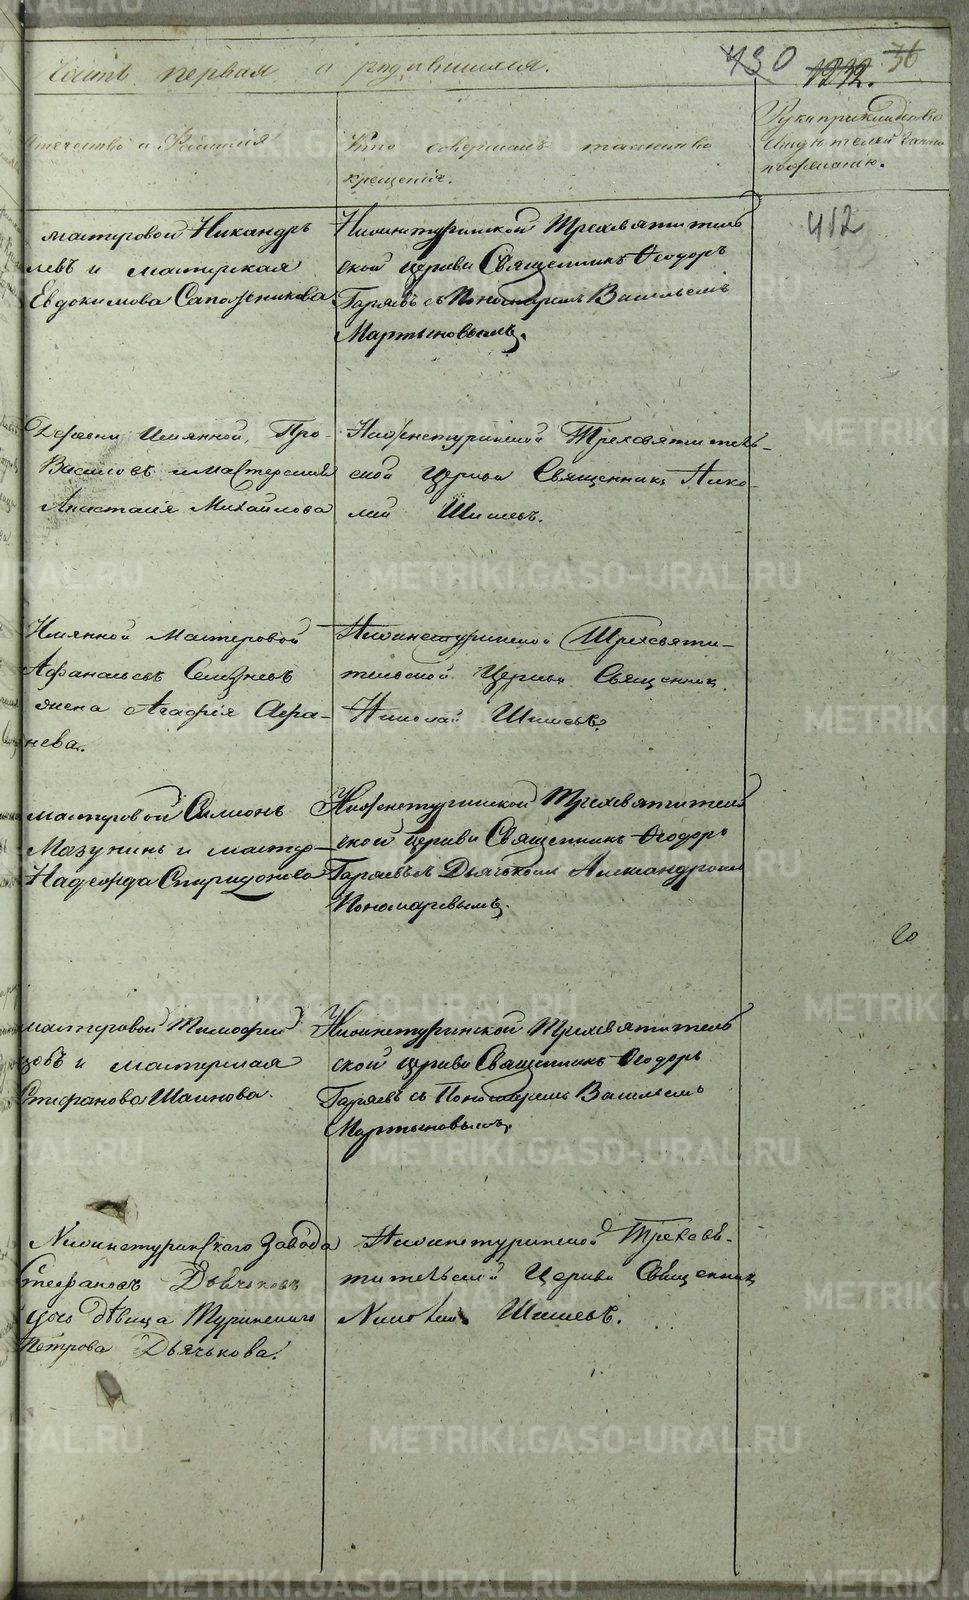 Часть первая, о родившихся.
430
36
1842.
отечество и Фамилія
Кто совершалъ таинство
крещенія.
Рукоприкладство
свидѣтелей записи
по желанію.
412
мастеровой Никандръ
левъ и мастерская
Евдокимова Сапожникова
Нижнетуринской Трехсвятитель
ской церкви Священникъ Ѳеодоръ
Гаряевъ съ Пономаремъ Васильемъ
Мартыновымъ.
Деревни Имянной, Про-
Василовъ и мастерская
Анастасія Михайлова
Нижнетуринской Трехсвятитель-
ской Церкви Священникъ Нико-
лай Шишевъ.
Имянной Мастеровой
Афанасьевъ Селезневъ
жена Агафія Афа-
нева.
Нижнетуринской Трехсвяти-
тельской Церкви Священникъ
Николай Шишевъ.
мастеровой Симионъ
Мазунинъ и мастер-
Надежда Спиридонова
Нижнетуринской Трехсвятитель
ской церкви Священникъ Ѳеодоръ
Гаряевъ съ Дьячькомъ Александромъ
Пономаревымъ.
20
мастеровой Тимофей
цовъ и мастерская
Стефанова Шаинова.
Нижнетуринской Трехсвятитель
ской церкви Священникъ Ѳеодоръ
Гаряевъ съ Пономаремъ Васильемъ
Мартыновымъ.
Нижнетуринскаго Завода
Стефановъ Дьячковъ
дочь дѣвица Туринскаго
Петрова Дьячькова.
Нижнетуринской Трехсвя-
тительской Церкви Священникъ
Николай Шишевъ.
METRIKI.GASO-URAL.RU